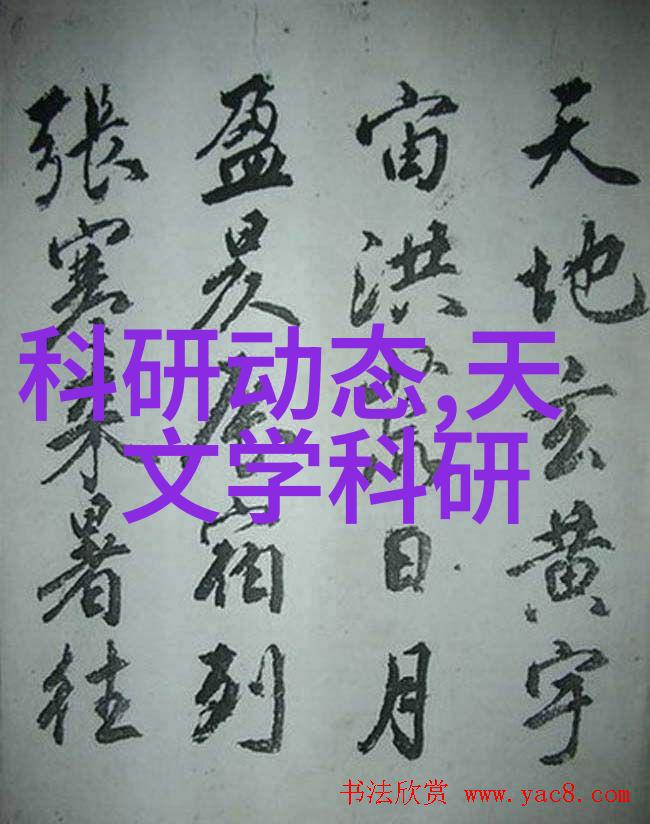 天地玄黄宇
宙洪日月
盈昃辰宿列
張寒来暑往
科研动态,天
文学科研
书法欣赏 www.yac8.com